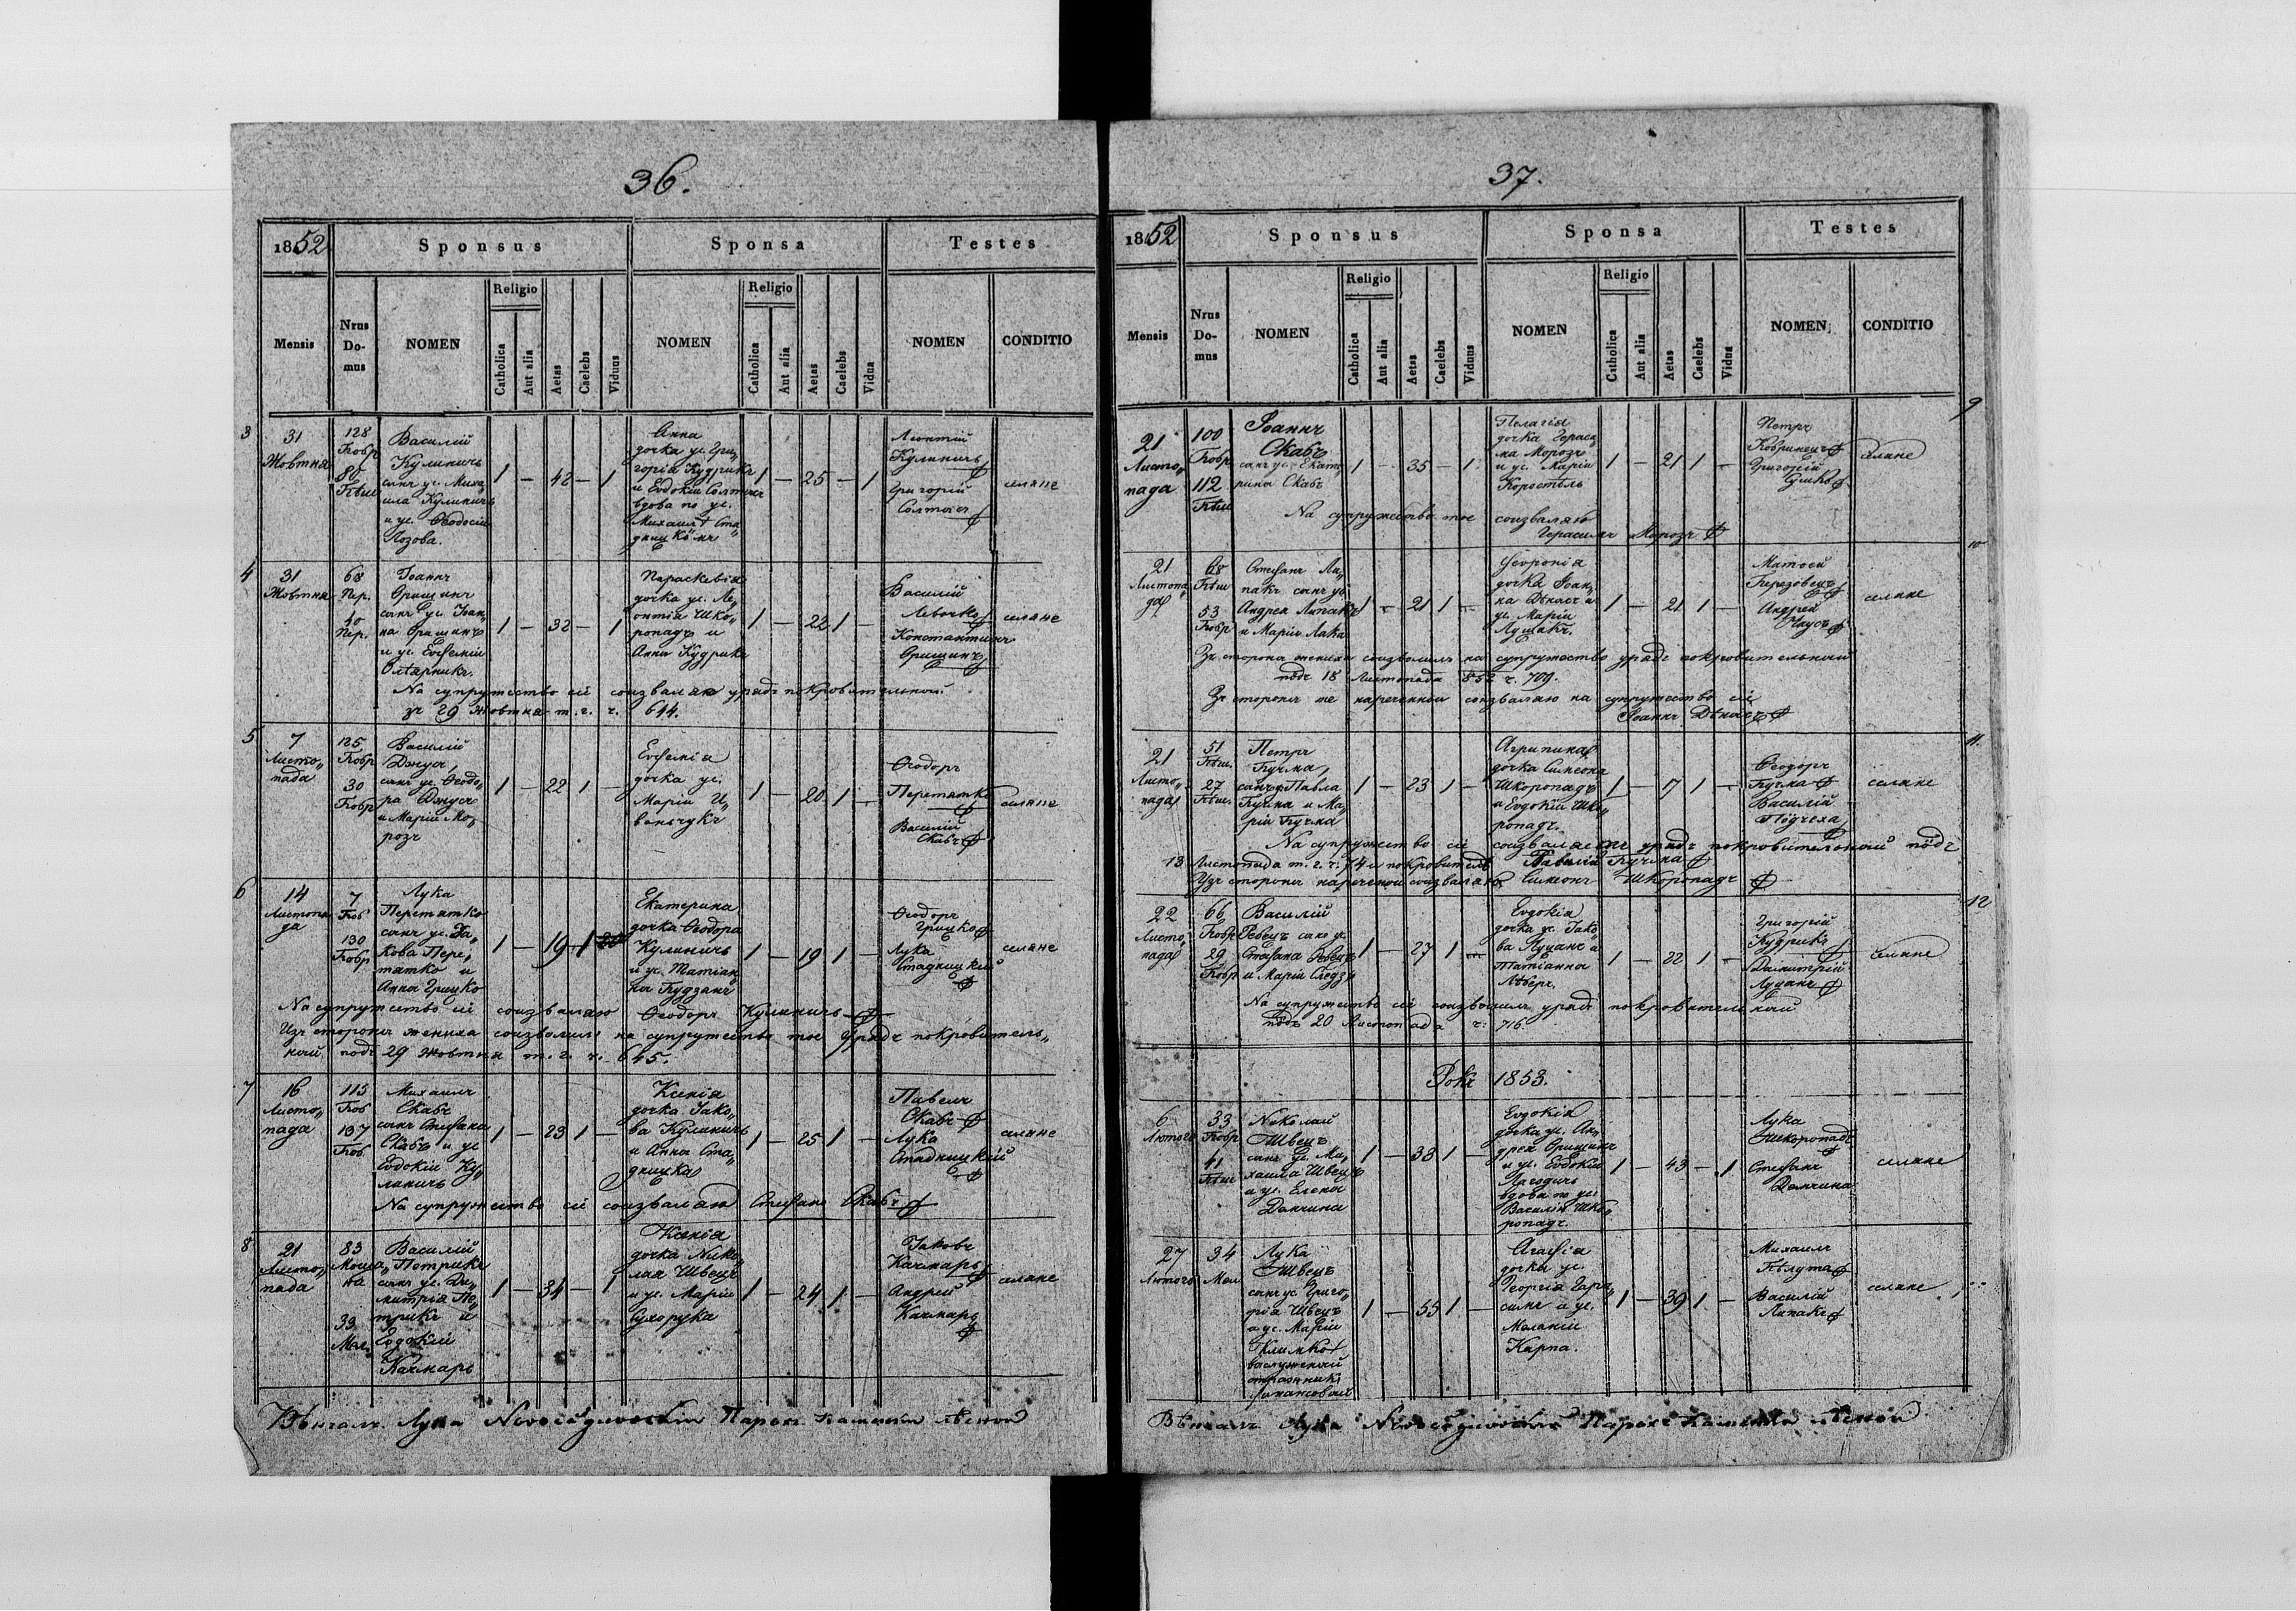 36.
1852
Sponsus
Sponsa
Testes
Mensis
Nrus
Do-
mus
NOMEN
Religio
Catholica
Aut alia
Aetas
Caelebs
Viduus
NOMEN
Religio
Catholica
Aut alia
Aetas
Caelebs
Vidua
NOMEN
CONDITIO
3
31
Жовтня
128
Бобр
80
Василій
Куликичъ
сынъ ус. Миха„
ила Куликичъ
и ус. Ѳеодосіи
Лозова.
1 — 42 — 1
Анна
дочка ус. Гри„
горія Кудрикъ
и Евдокіи
вдова по ус.
Михаилѣ Ста„
дницкомъ
1 — 25 — 1
Леонтій
Куликичъ
Григорій
селяне
4
31
Жовтня
68
Пер.
10
Пер.
Іоаннъ
Орищинъ
сынъ ус. Іоан„
на Орищинъ
и ус. Евфеміи
Олѣярникъ.
1 — 32 — 1
Параскевія
дочка ус. Ле„
онтія Шко„
ропадъ и
Анны Кудрикъ
1 — 22 1 —
Василій
Левочко
Константинъ
Орищинъ
селяне
На супружество сіе соизваляе урядъ покровительный
зъ 29 Жовтня т. г. ч. 644.
5
7
Листо„
пада
125
Бобр
30
Бобр
Василій
Джусъ,
сынъ ус. Ѳеодо„
ра Джусъ
и Маріи Мо„
розъ
1 — 22 1 —
Евфемія
дочка ус.
Маріи И„
ванчукъ
1 — 20 1 —
Ѳеодоръ
Перетятко
Василій
Скабъ
селяне
6
14
Листопа
да
7
Боб
130
Бобр
Лука
Перетятко
сынъ ус. Іа„
кова Пере„
тятко и
Анны Грицко
1 — 19 — 1
Екатерина
дочка Ѳеодора
Куликичъ
и ус. Татіан„
ны
1 — 19 1 —
Ѳеодоръ
Грицко
Лука
Стадницкій
селяне
На супружество сіе соизваляю Ѳеодоръ Куликичъ
Изъ стороны жениха соизволилъ на супружество тое Урядъ покровитель„
ный подъ 29 Жовтня т. г. ч. 645.
7
16
Листо„
пада
115
Боб
137
Боб
Михаилъ
Скабъ
сынъ Стефана
Скабъ и ус
Евдокіи Ку„
ликичъ
1 — 23 1 —
Ксенія
дочка Іако„
ва Куликичъ
и Анны Ста„
дницка
1 — 25 1 —
Павелъ
Скабъ
Лука
Стадницкій
селяне
На супружество сіе соизваляю Стефанъ Скабъ
8
21
Листо„
пада
83
33
Мал.
Василій
Петрикъ
сынъ ус. Ди„
митрія Пе„
трикъ и
Евдокіи
Качмаръ
1 — 34 — 1
Ксенія
дочка Нико„
лая Швецъ
и ус. Маріи
Сухорука
1 — 24 1 —
Іаковъ
Качмаръ
Андрей
Качмаръ
селяне
Вѣнчалъ Лука Парохъ
37.
1852
Sponsus
Sponsa
Testes
Mensis
Nrus
Do-
mus
NOMEN
Religio
Catholica
Aut alia
Aetas
Caelebs
Viduus
NOMEN
Religio
Catholica
Aut alia
Aetas
Caelebs
Vidua
NOMEN
CONDITIO
9
21
Листо„
пада
100
Бобр
112
Іоаннъ
Скабъ
сынъ ус. Екате„
рины Скабъ
1 — 35 — 1
Пелагія
дочка Гераси„
ма Морозъ
и ус. Маріи
Коростѣль
1 — 21 1 —
Петръ
Кобринецъ
Григорій
селяне
На супружество тое соизваляю
Герасимъ Морозъ
10
21
Листопа„
да
68
53
Бобр
Стефанъ Ли„
пакъ сынъ ус.
Андрея Липакъ
и Маріи
1 — 21 1 —
Февронія
дочка Іоан„
на Дѣкасъ и
ус. Маріи
Лущакъ.
1 — 21 1 —
Матѳей
Андрей
селяне
Зъ стороны жениха соизволилъ на супружество урядъ покровительный
подъ 18 Листопада 852 ч. 709.
Зъ стороны же нареченной соизваляю на супружество сіе
Іоаннъ Дѣкасъ
11.
21
Листо„
пада
51
27
Петръ
Кучма,
сынъ Павла
Кучма и Ма„
ріи Кучма
1 — 23 1 —
Агрипина
дочка Симеона
Шкоропадъ
и Евдокіи Шко„
ропадъ.
1 — 17 1 —
Ѳеодоръ
Кучма
Василій
селяне
На супружество сіе соизваляетъ урядъ покровительный подъ
13 Листопада т. г. ч. 74 и покровитель Кучма
Изъ стороны нареченой соизваляю Симеонъ Шкоропадъ
12
22
Листо„
пада
66
Бобр
29
Бобр
Василій
Ревецъ сынъ ус.
Стефана Ревецъ
и Маріи
1 — 27 1 —
Евдокія
дочка ус. Іако„
ва Луцанъ и
Татіанны
1 — 22 1 —
Григорій
Кудрикъ
Димитрій
Луцанъ
селяне
На супружество сіе соизволилъ урядъ покровительный
подъ 20 Листопада ч: 716.
Рокъ 1853.
6
Лютого
33
Бобр
41
Николай
Швецъ
сынъ ус. Ми„
хаила Швецъ
и ус. Елены
Данчина
1 — 33 1 —
Евдокія
дочка ус. Ан„
дрея Орищинъ
и ус. Евдокіи
вдова по ус.
Василіи Шко„
ропадъ.
1 — 43 — 1
Лука
Шкоропадъ
Стефанъ
Данчина
селяне
27
Лютого
34
Мал
Лука
Швецъ
сынъ ус. Григо„
рія Швецъ
и ус. Маріи
Климко
выслуженый
стражникъ
финансовый
1 — 55 1 —
Агафія
дочка ус.
Георгія Гера„
симъ и ус.
Меланіи
Карпа.
1 — 39 1 —
Михаилъ
Василій
Липакъ
селяне
Вѣнчалъ Лука Парохъ